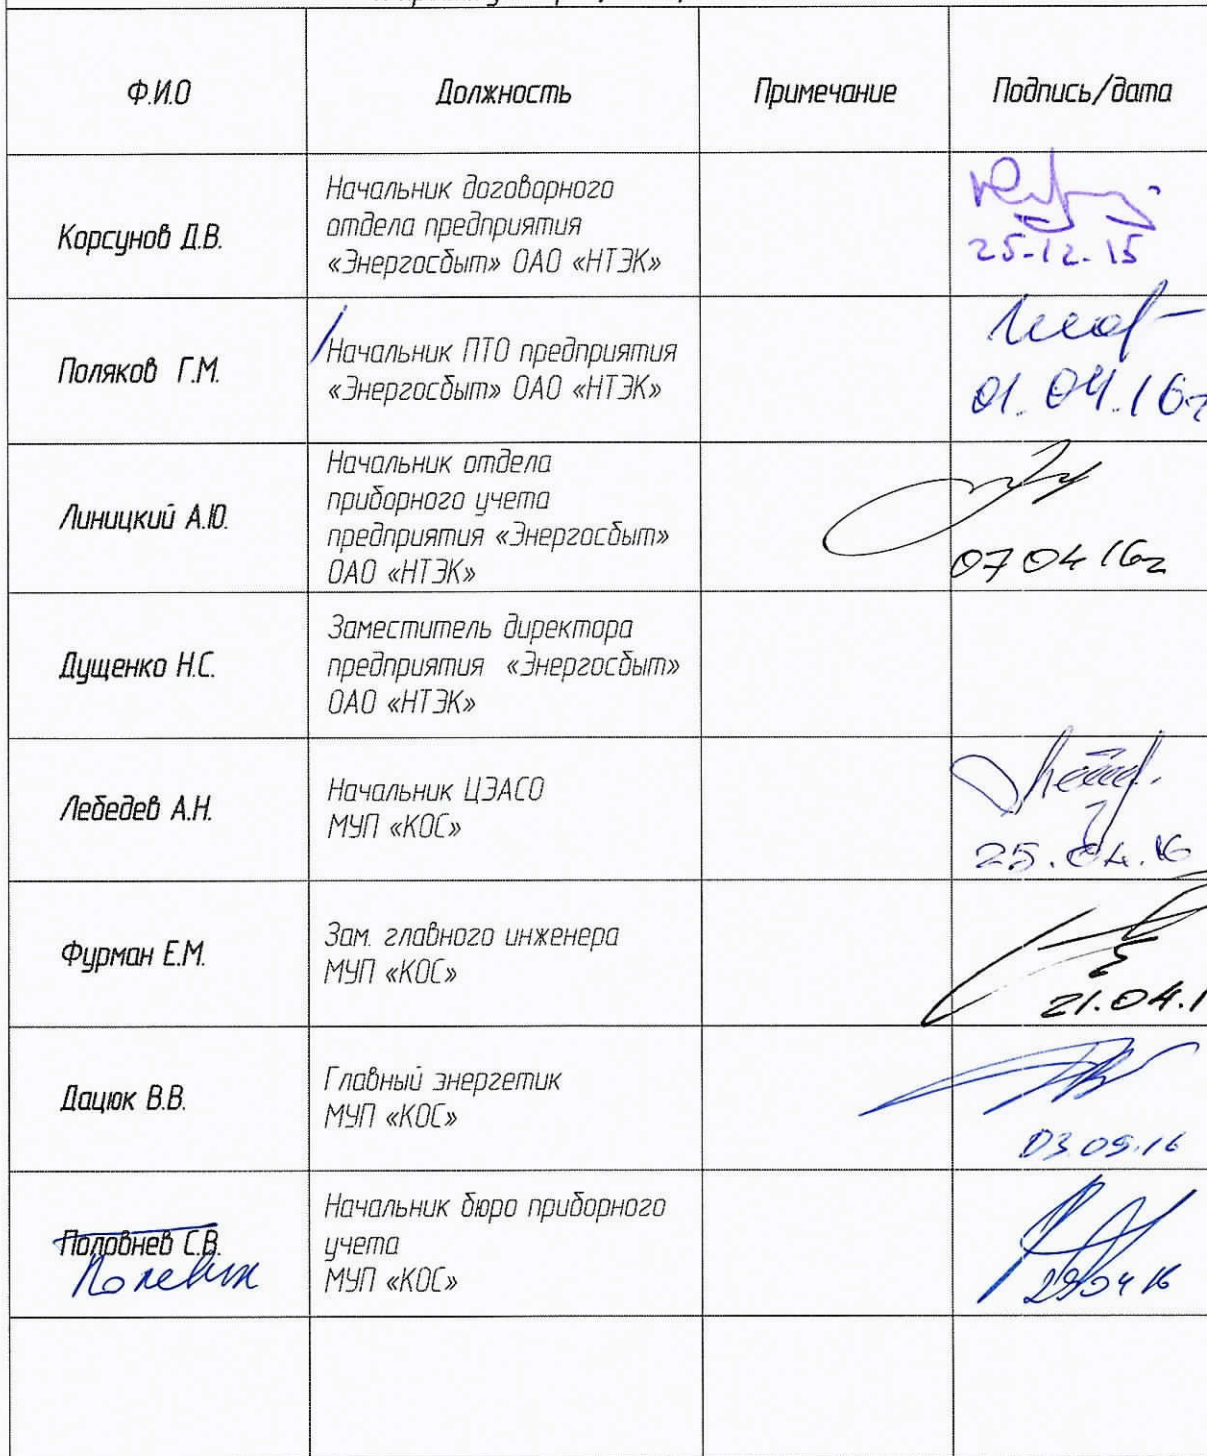 Ф.И.О
Должность
Примечание
Подпись/дата
Корсунов Д.В.
Начальник договорного
отдела предприятия
«Энергосбыт» ОАО «НТЭК»
25-12-15
Поляков Г.М.
Начальник ПТО предприятия
«Энергосбыт» ОАО «НТЭК»
01.04.16г
Линицкий А.Ю.
Начальник отдела
приборного учета
предприятия «Энергосбыт»
ОАО «НТЭК»
07 04 16г
Дущенко Н.С.
Заместитель директора
предприятия «Энергосбыт»
ОАО «НТЭК»
Лебедев А.Н.
Начальник ЦЭАСО
МУП «КОС»
25.04.16
Фурман Е.М.
Зам. главного инженера
МУП «КОС»
21.04.1
Дацюк В.В.
Главный энергетик
МУП «КОС»
03.05.16
Половнев С.В.
Начальник бюро приборного
учета
МУП «КОС»
29 04 16